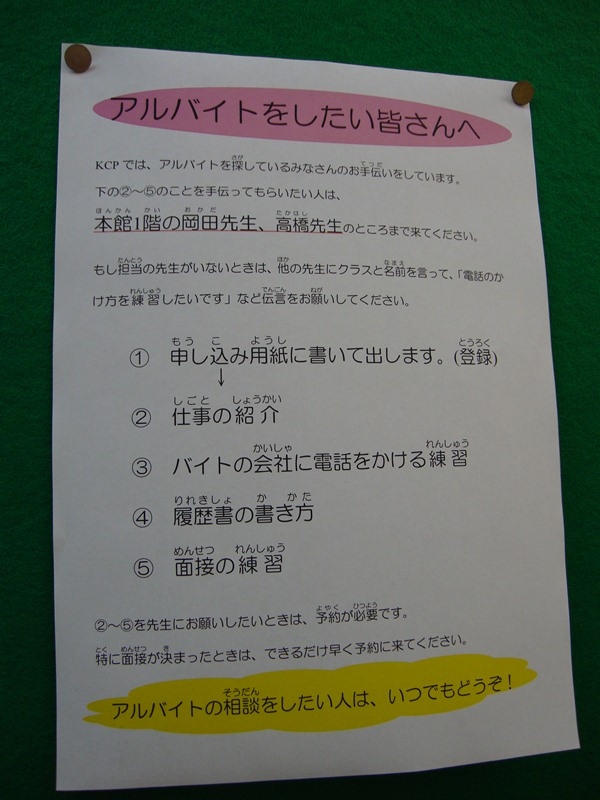 アルバイトをしたい皆さんへ
KCPでは、アルバイトを探しているみなさんのお手伝いをしています。
下の②〜⑤のことを手伝ってもらいたい人は、
本館1階の岡田先生、高橋先生のところまで来てください。
もし担当の先生がいないときは、他の先生にクラスと名前を言って、「電話のか
け方を練習したいです」など伝言をお願いしてください。
① 申し込み用紙に書いて出します。(登録)
↓
② 仕事の紹介
③ バイトの会社に電話をかける練習
④ 履歴書の書き方
⑤ 面接の練習
②〜⑤を先生にお願いしたいときは、予約が必要です。
特に面接が決まったときは、できるだけ早く予約に来てください。
アルバイトの相談をしたい人は、いつでもどうぞ！